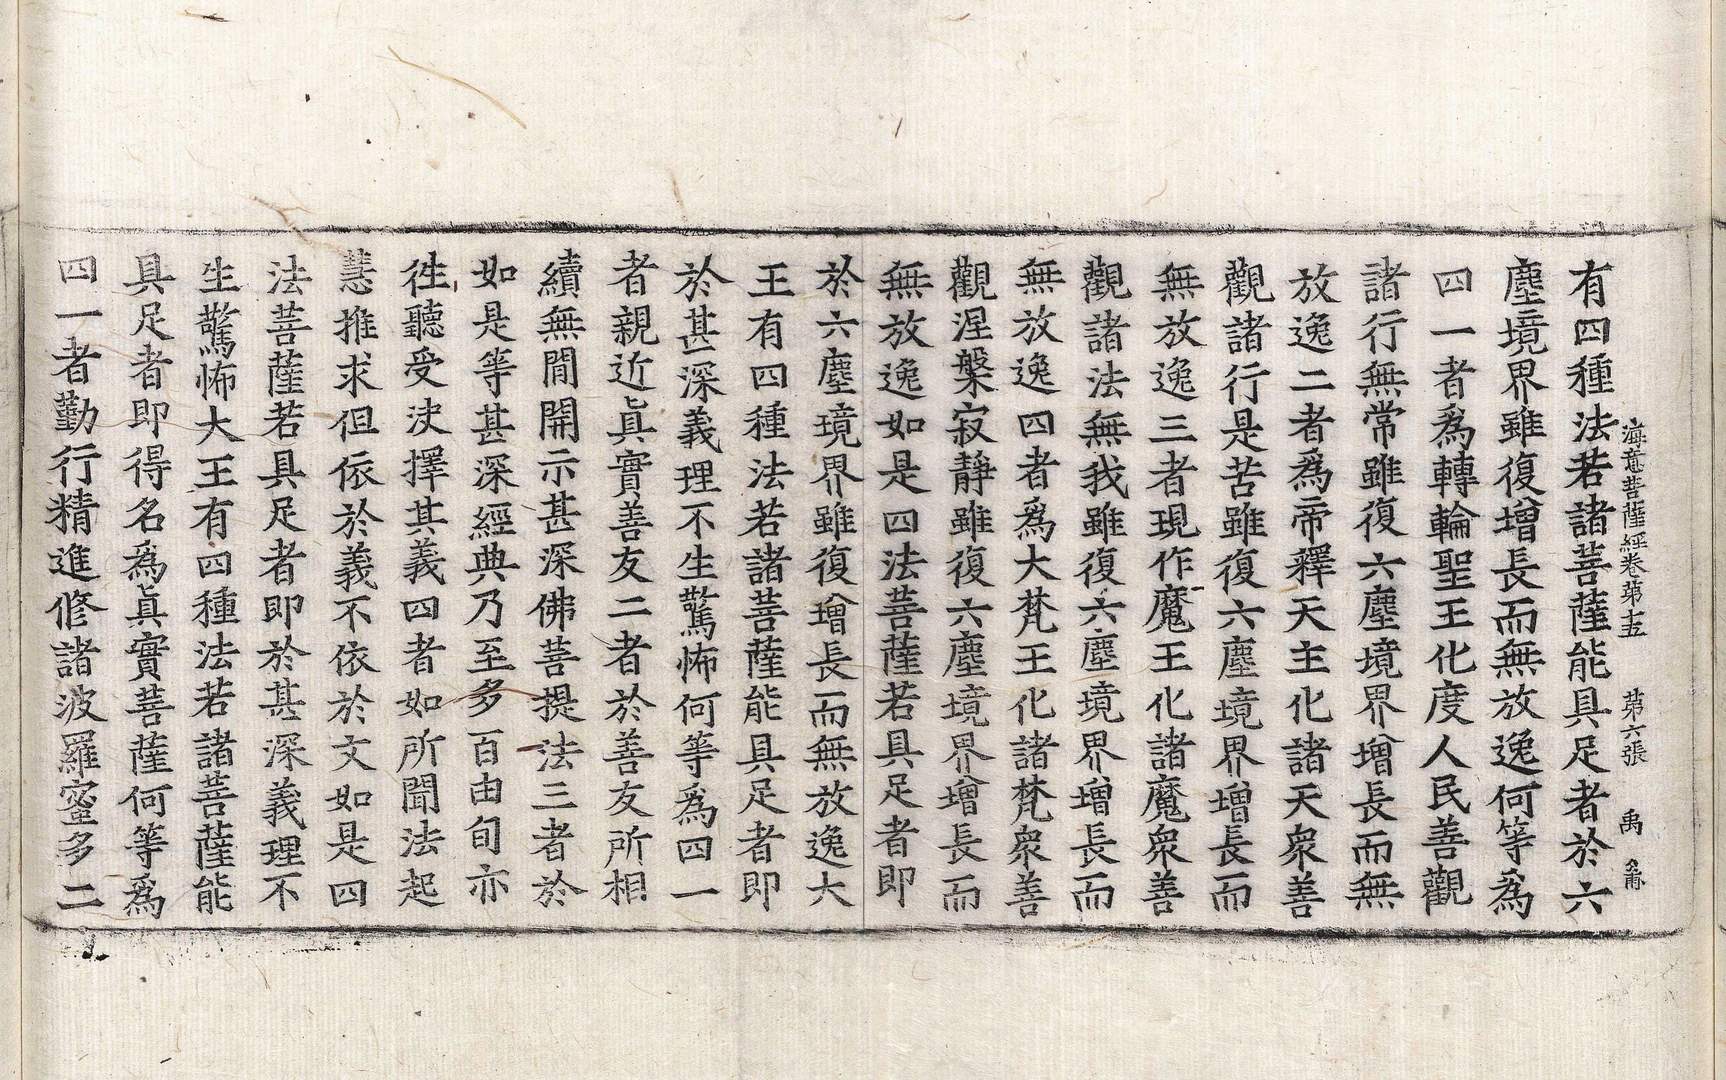 海意菩薩經卷第十五 第六張 禹
有四種法若諸菩薩能具足者於六
塵境界雖復增長而無放逸何等為
四一者為轉輪聖王化度人民善觀
諸行無常雖復六塵境界增長而無
放逸二者為帝釋天主化諸天衆善
觀諸行是苦雖復六塵境界增長而
無放逸三者現作魔王化諸魔衆善
觀諸法無我雖復六塵境界增長而
無放逸四者為大梵王化諸梵衆善
觀涅槃寂靜雖復六塵境界增長而
無放逸如是四法菩薩若具足者即
於六塵境界雖復增長而無放逸大
王有四種法若諸菩薩能具足者即
於甚深義理不生驚怖何等為四一
者親近眞實善友二者於善友所相
續無間開示甚深佛菩提法三者於
如是等甚深經典乃至多百由旬亦
徃聽受決擇其義四者如所聞法起
慧推求但依於義不依於文如是四
法菩薩若具足者即於甚深義理不
生驚怖大王有四種法若諸菩薩能
具足者即得名為眞實菩薩何等為
四一者勤行精進修諸波羅蜜多二